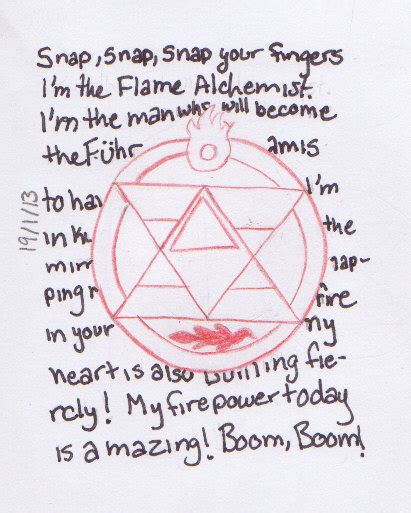 Snap, Snap, Snap your fingers
I'm the Flame Alchemist.
I'm the man who will become
the Führ amis
to hav I'm
in the
mir nap-
ping r fire
in your my
heart is also burning fie-
rcly! My firepower today
is amazing! Boom, Boom!
19/1/13